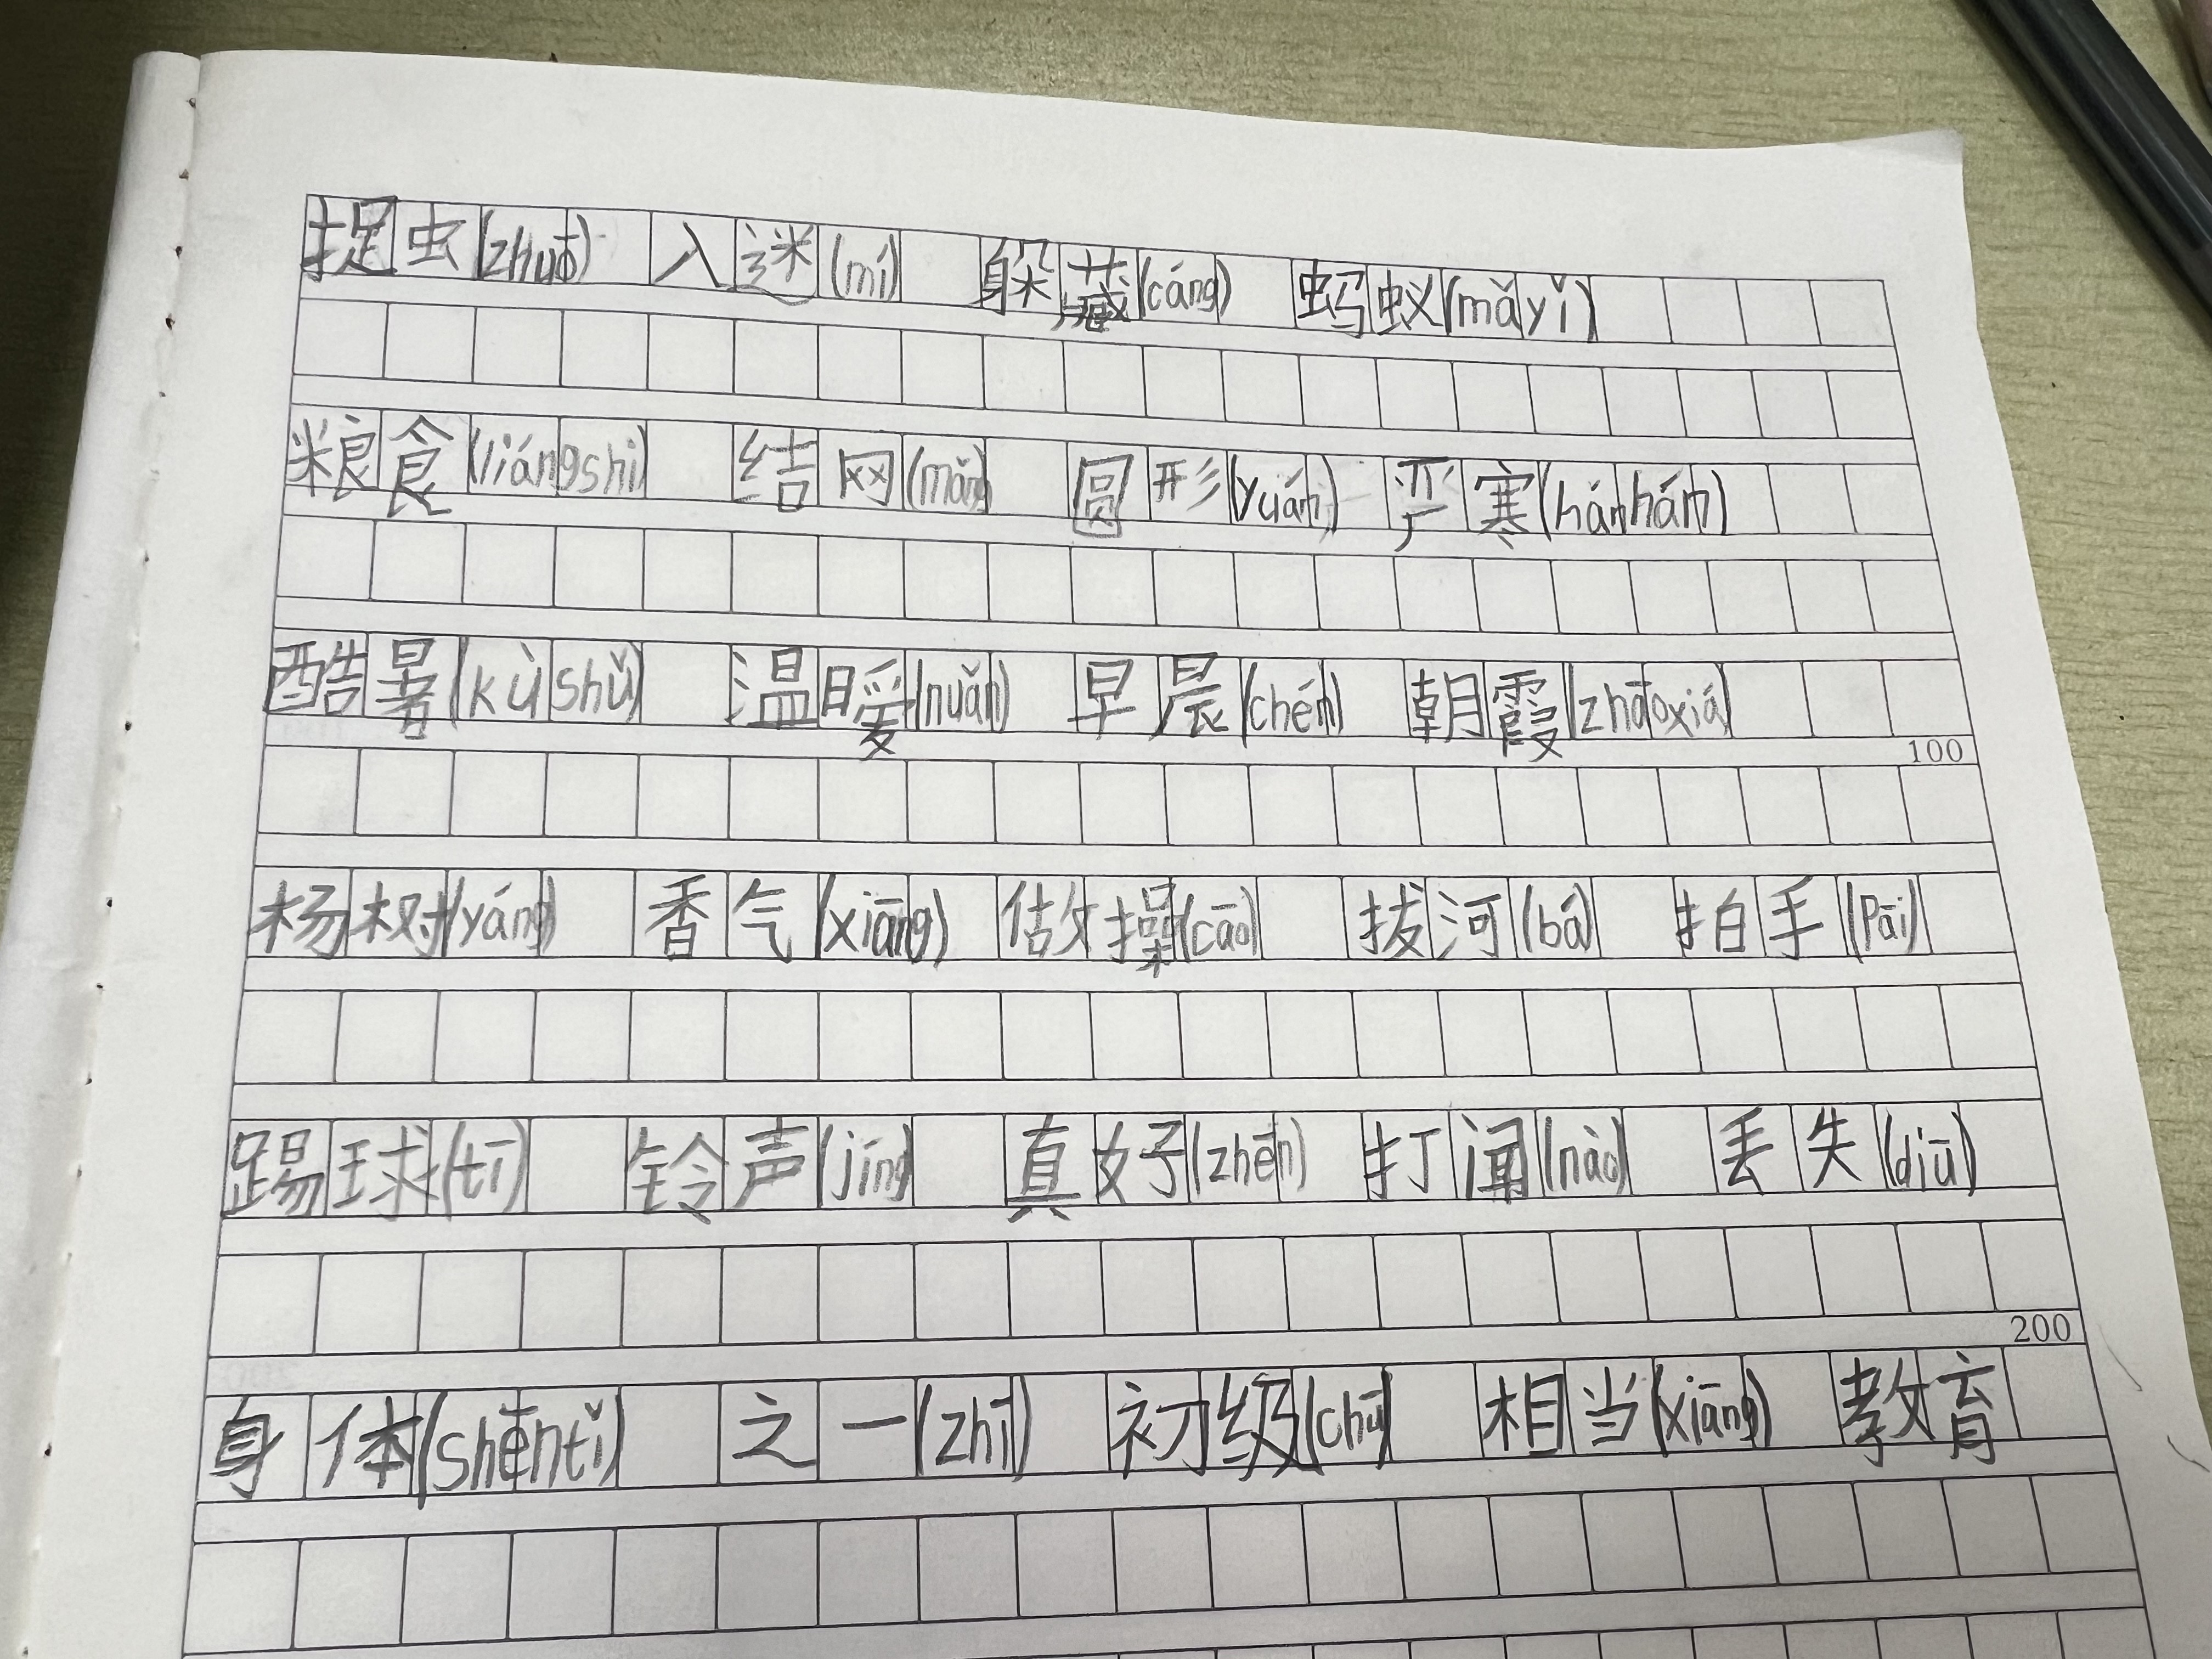 捉虫(zhuō) 入迷(mí) 躲藏(cáng) 蚂蚁(mǎyǐ)
粮食(liángshi) 结网(mǎng) 圆形(yuán) 严寒(hánhán)
酷暑(kùshǔ) 温暖(nuǎn) 早晨(chén) 朝霞(zhāoxiá)
100
杨树(yáng) 香气(xiāng) 做操(cāo) 拔河(bá) 拍手(Pāi)
踢球(tī) 铃声(jíng) 真好(zhēn) 打闹(nào) 丢失(diū)
200
身体(shēntǐ) 之一(zhī) 初级(chū) 相当(xiāng) 教育